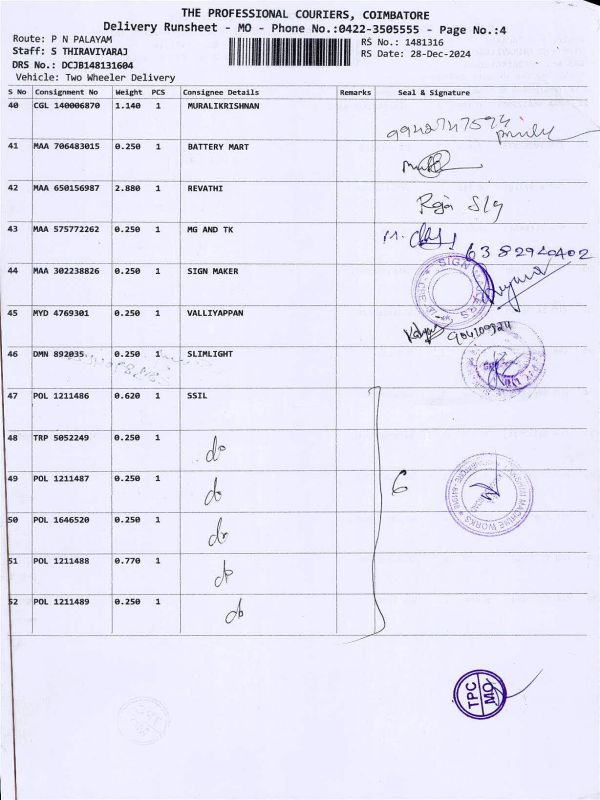 THE PROFESSIONAL COURIERS, COIMBATORE
Delivery Runsheet - MO - Phone No.:0422-3505555 - Page No.:4
Route: P N PALAYAM
RS No.: 1481316
Staff: S THIRAVIYARAJ
RS Date: 28-Dec-2024
DRS No.: DCJB148131604
Vehicle: Two Wheeler Delivery
S No Consignment No Weight PCS Consignee Details Remarks Seal & Signature
40 CGL 140006870 1.140 1 MURALIKRISHNAN
41 MAA 706483015 0.250 1 BATTERY MART
42 MAA 650156987 2.880 1 REVATHI
43 MAA 575772262 0.250 1 MG AND TK
6382940402
44 MAA 302238826 0.250 1 SIGN MAKER
45 MYD 4769301 0.250 1 VALLIYAPPAN
46 DMN 892035 0.250 1 SLIMLIGHT
47 POL 1211486 0.620 1 SSIL
48 TRP 5052249 0.250 1 do
49 POL 1211487 0.250 1 do 6
50 POL 1646520 0.250 1 do
51 POL 1211488 0.770 1 do
52 POL 1211489 0.250 1 do
TPC
MO